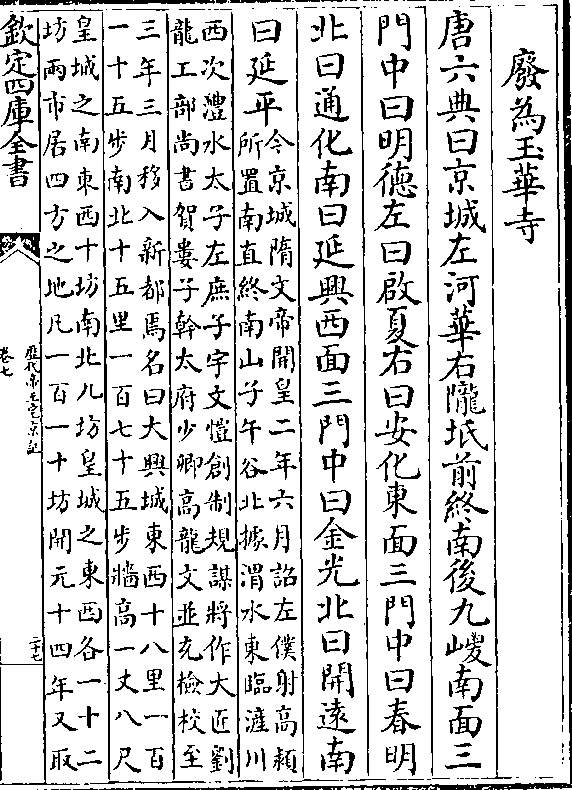 廢為玉華寺
唐六典曰京城左河華右隴坻前終南後九嵕南面三
門中曰明德左曰啟夏右曰安化東面三門中曰春明
北曰通化南曰延興西面三門中曰金光北曰開遠南
曰延平
今京城隋文帝開皇二年六月詔左僕射高熲
所置南直終南山子午谷北據渭水東臨滻川
西次灃水太子左庶子宇文愷創制規謀將作大匠劉
龍工部尚書賀婁子幹太府少卿高龍文並充檢校至
三年三月移入新都焉名曰大興城東西十八里一百
一十五步南北十五里一百七十五步牆高一丈八尺
皇城之南東西十坊南北九坊皇城之東西各一十二
坊兩市居四方之地凡一百一十坊開元十四年又取
欽定四庫全書
歷代帝王宅京記
卷七
二十七